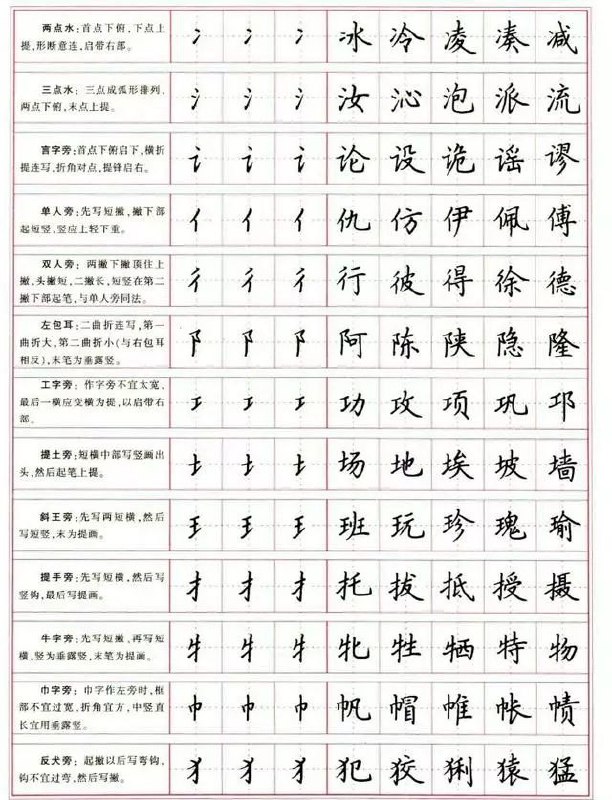 两点水：首点下俯，下点上
提，形断意连，启带右部。
冫 冫 冫 冰 冷 凌 凑 减
三点水：三点成弧形排列，
两点下俯，末点上提。
氵 氵 氵 汝 沁 泡 派 流
言字旁：首点下俯启下，横折
提连写，折角对点，提锋启右。
讠 讠 讠 论 设 诡 谣 谬
单人旁：先写短撇，撇下部
起短竖，竖应上轻下重。
亻 亻 亻 仇 仿 伊 佩 傅
双人旁：两撇下撇顶住上
撇，头撇短，二撇长，短竖在第二
撇下部起笔，与单人旁同法。
彳 彳 彳 行 彼 得 徐 德
左包耳：二曲折连写，第一
曲折大，第二曲折小(与右包耳
相反)，末笔为垂露竖。
阝 阝 阝 阿 陈 陕 隐 隆
工字旁：作字旁不宜太宽，
最后一横应变横为提，以启带右
部。
工 工 工 功 攻 项 巩 邛
提土旁：短横中部写竖画出
头，然后起笔上提。
土 土 土 场 地 埃 坡 墙
斜王旁：先写两短横，然后
写短竖，末为提画。
王 王 王 班 玩 珍 瑰 瑜
提手旁：先写短横，然后写
竖钩，最后写提画。
扌 扌 扌 托 拔 抵 授 摄
牛字旁：先写短撇，再写短
横，竖为垂露竖，末笔为提画。
牜 牜 牜 牝 牲 牺 特 物
巾字旁：巾字作左旁时，框
部不宜过宽，折角宜方，中竖直
长宜用垂露竖。
巾 巾 巾 帆 帽 帷 帐 帻
反犬旁：起撇以后写弯钩，
钩不宜过弯，然后写撇。
犭 犭 犭 犯 狡 猁 猿 猛